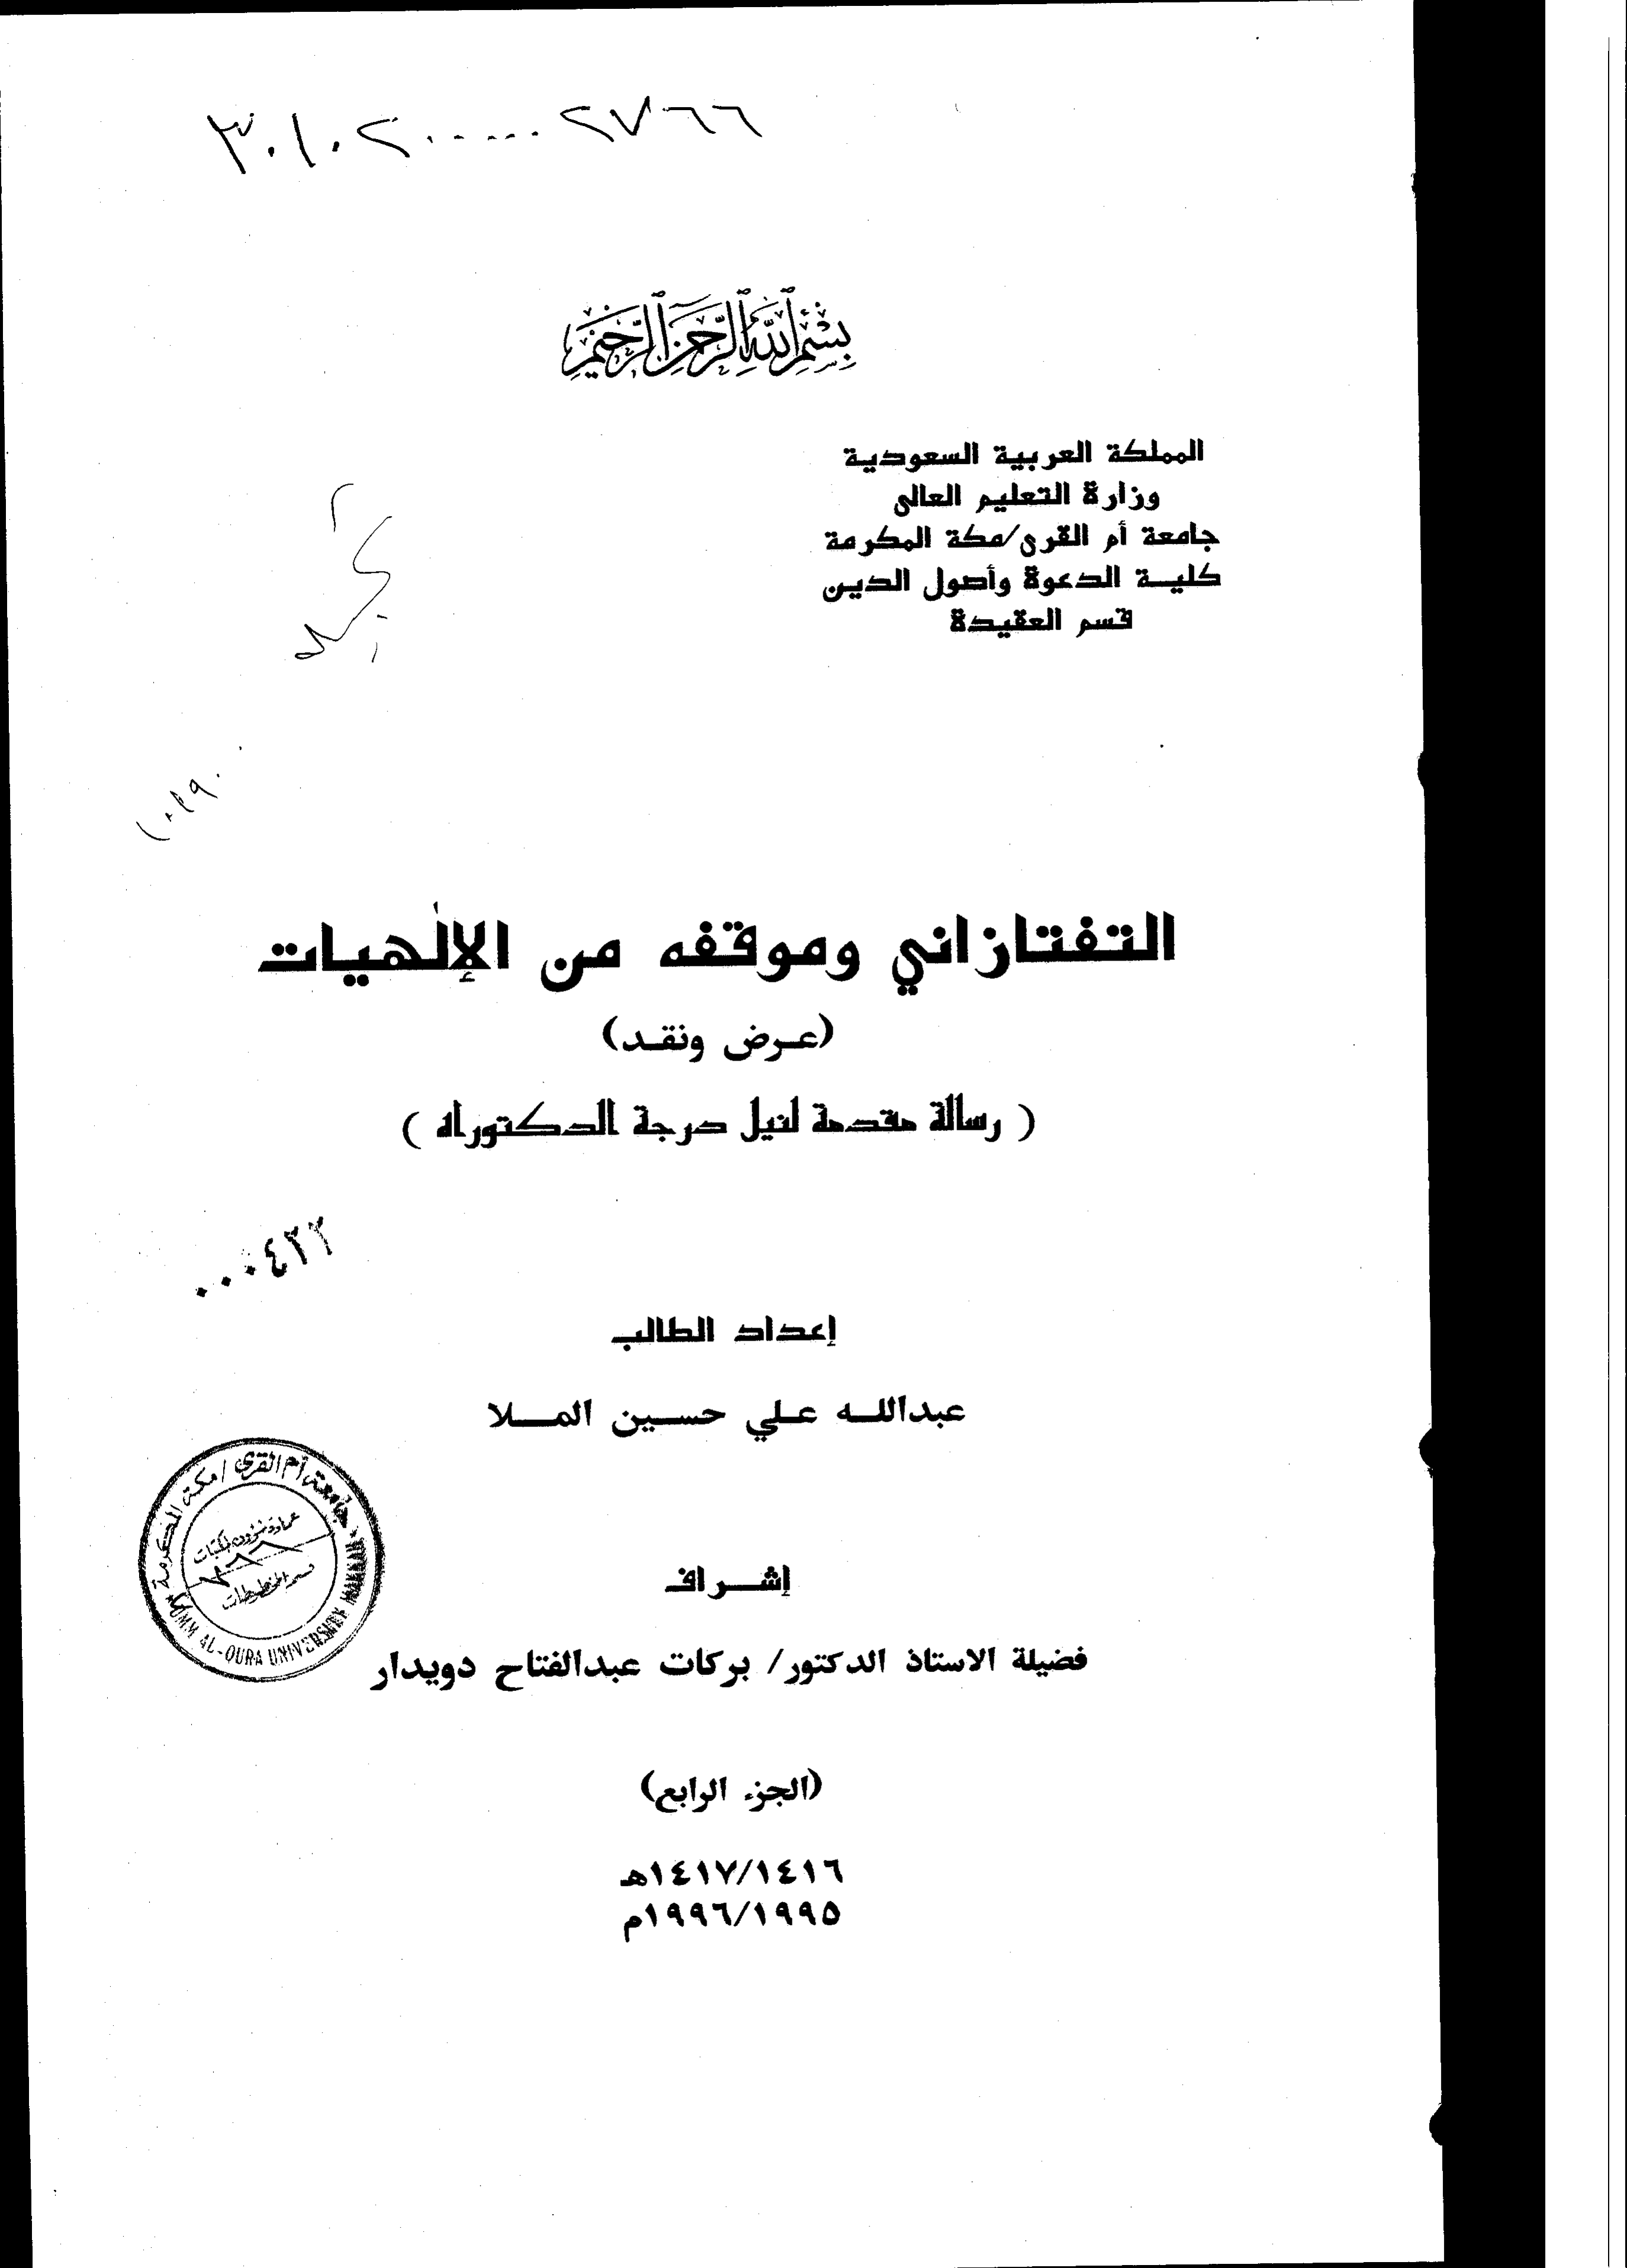 ٣٠١٠٢٠٠٠٠٠٢٧٦٦
بسم الله الرحمن الرحيم
المملكة العربية السعودية
وزارة التعليم العالى
جامعة أم القرى/مكة المكرمة
كليـة الدعوة وأصول الدين
قسم العقيدة
التفتازاني وموقفه من الإلهيات
(عـرض ونقـد)
( رسالة مقدمة لنيل درجة الدكتوراه )
٠٠٠٤٢٢
إعداد الطالب
عبدالله علي حسين الملا
جامعة أم القرى / مكة المكرمة
عمادة شؤون المكتبات
قسم المخطوطات
UMM AL-QURA UNIVERSITY MAKKAH
إشـراف
فضيلة الاستاذ الدكتور/ بركات عبدالفتاح دويدار
(الجزء الرابع)
١٤١٧/١٤١٦هـ
١٩٩٦/١٩٩٥م